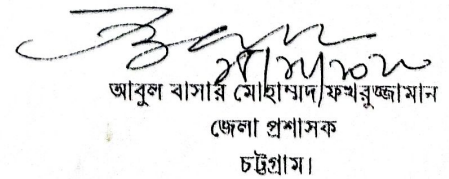 আবুল বাসার মোহাম্মদ ফখরুজ্জামান
জেলা প্রশাসক
চট্টগ্রাম।